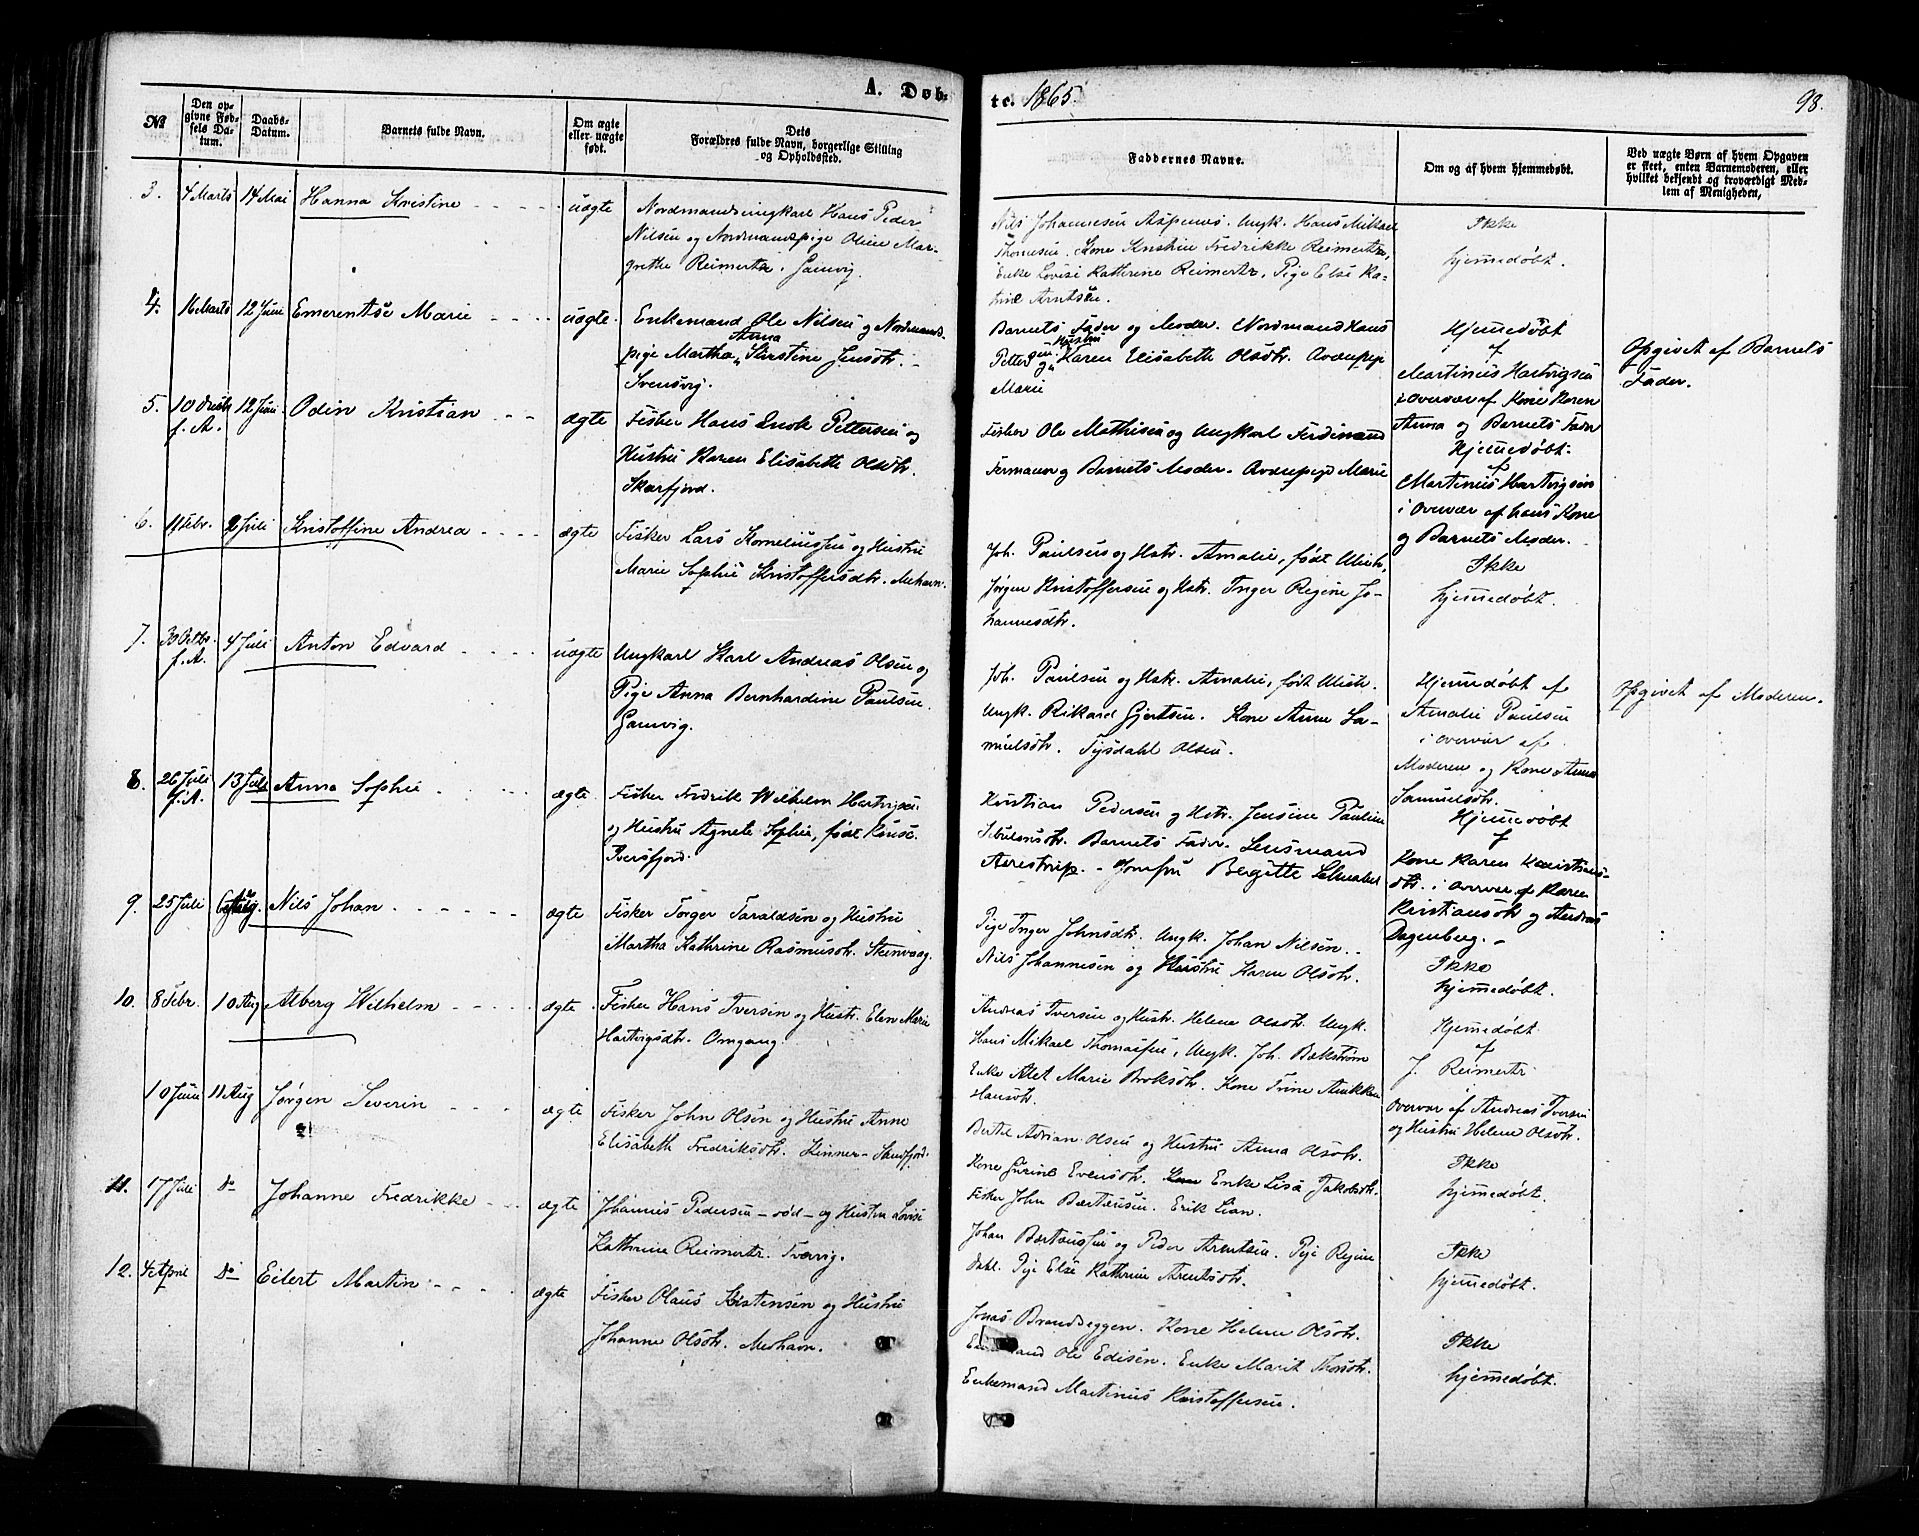 A. Døb-
te. 1865.
98.
No
Den op-
givne Fød-
sels Da-
tum.
Daabs-
Datum.
Barnets fulde Navn.
Om ægte
eller uægte
født.
Dets
Forældres fulde Navn, borgerlige Stilling
og Opholdssted.
Faddernes Navne.
Om og af hvem hjemmedøbt.
Ved uægte Børn af hvem Opgaven
er skeet, enten Barnemoderen, eller
hvilket bekjendt og troværdigt Med-
lem af Menigheden,
3. 4 Marts 14 Mai Hanna Kristine uægte
Nordmandsungkarl Hans Peder
Nilsen og Nordmandspige Oline Mar-
grethe Reimertz. Gamvig.
Nils Johannesen Aspenæs. Ungk. Hans Mikael
Thomesen. Kone Kristine Fredrikke Reimertz,
Enke Lovise Kathrine Reimertz, Pige Else Ka-
trine Arntsen.
Ikke
hjemmedøbt.
4. 16 Marts 12 Juni Emerentse Marie uægte.
Enkemand Ole Nilsen og Nordmands
pige Martha Anna Kirstine Jensdtr.
Svensvig.
Barnets Fader og Moder. Nordmand Hans
Pettersen og Hustru Karen Elisabeth Olsdtr.
Marie
Hjemmedøbt
af
Martinus Hartvigsen
i overvær af Kone Karen
Anna og Barnets Fader
Opgivet af Barnets
Fader.
5. 10 Decbr. f. A. 12 Juni Odin Kristian ægte
Fisker Hans Enok Pettersen og
Hustru Karen Elisabeth Olsdtr.
Skarfjord.
Fisker Ole Mathisen og Ungkarl Ferdinand
Fermann og Barnets Moder. Marie
Hjemmedøbt.
af
Martinus Hartvigsen
i overvær af hans Kone
og Barnets Moder.
6. 11 Febr. 2 Juli Kristoffine Andrea ægte
Fisker Lars Korneliussen og Hustru
Marie Sophie Kristoffersdtr. Mehavn.
Joh. Paulsen og Hstr. Amalie, født Ulich,
Jørgen Kristoffersen og Hstr. Inger Regine Jo-
hannesdtr.
Ikke
hjemmedøbt.
7. 30 Octbr. f. A. 4 Juli Anton Edvard uægte
Ungkarl Karl Andreas Olsen og
Pige Anna Bernhardine Paulsen.
Gamvig.
Joh. Paulsen og Hstr. Amalie, født Ulich.
Ungk. Rikard Gjertsen. Kone Anne Sa-
muelsdtr. Tysdahl Olsen.
Hjemmedøbt af
Amalie Paulsen
i overvær af
Moderen og Kone Anna
Samuelsdtr.
Opgivet af Moderen.
8. 26 Juli f. A. 13 Juli Anna Sophie ægte.
Fisker Fredrik Wilhelm Hartvigsen
og Hustru Agnete Sophie, født Kruse.
Iversfjord.
Kristian Pedersen og Hstr. Jensine Pauline
Barnets Fader. Lensmand
Aarestrup. Jomfru Bergitte
Hjemmedøbt
af
Kone Karen Kristians-
dtr. i overvær af Karen
Kristiansdtr og Andreas
Dagenberg.
9. 25 Juli Aug. Nils Johan ægte
Fisker Torger Taraldsen og Hustru
Martha Kathrine Rasmusdtr. Stenvaag.
Pige Inger Johnsdtr. Ungk. Johan Nilsen.
Nils Johannesen og Hustru Karen Olsdtr.
Ikke
hjemmedøbt.
10. 8 Febr. 10 Aug Alberg Wilhelm ægte
Fisker Hans Iversen og Hustr. Elen Marie
Hartvigsdtr. Omgang.
Andreas Iversen og Hustr. Helene Olsdtr. Ungk.
Hans Mikael Thomassen, Ungk. Joh. Bækstrøm
Enke Alet Marie Broksdtr. Kone Trine Anikken
Hansdtr.
Hjemmedøbt.
af
J. Reimertz
overvær af Andreas Iversen
og Hustru Helene Olsdtr.
10 Juni 11 Aug Jørgen Severin ægte
Fisker John Olsen og Hustru Anne
Elisabeth Fredriksdtr. Kinner-Sandfjord.
Bertel Adrian Olsen og Hustru Anna Olsdtr.
Kone Gurine Evensdtr. Enke Lisa Jakobsdtr.
Fisker John Bærtæusen. Erik Lian.
Ikke
hjemmedøbt.
11. 17 Juli Do Johanne Fredrikke ægte
Johannes Pedersen - død - og Hustru Lovise
Kathrine Reimertz. Tvervig.
Johan Bærtæussen og Peder Arentsen. Pige Regine
Dahl. Pige Else Kathrine Arentsdtr.
Ikke
hjemmedøbt.
12. 4 April Do Eilert Martin ægte
Fisker Olaus Kristensen og Hustru
Johanne Olsdtr. Mehavn.
Jonas Brandeggen. Kone Helene Olsdtr.
Ole Edisen. Enke Marit Thorsdtr.
Enkemand Martinus Kristoffersen.
Ikke
hjemmedøbt.